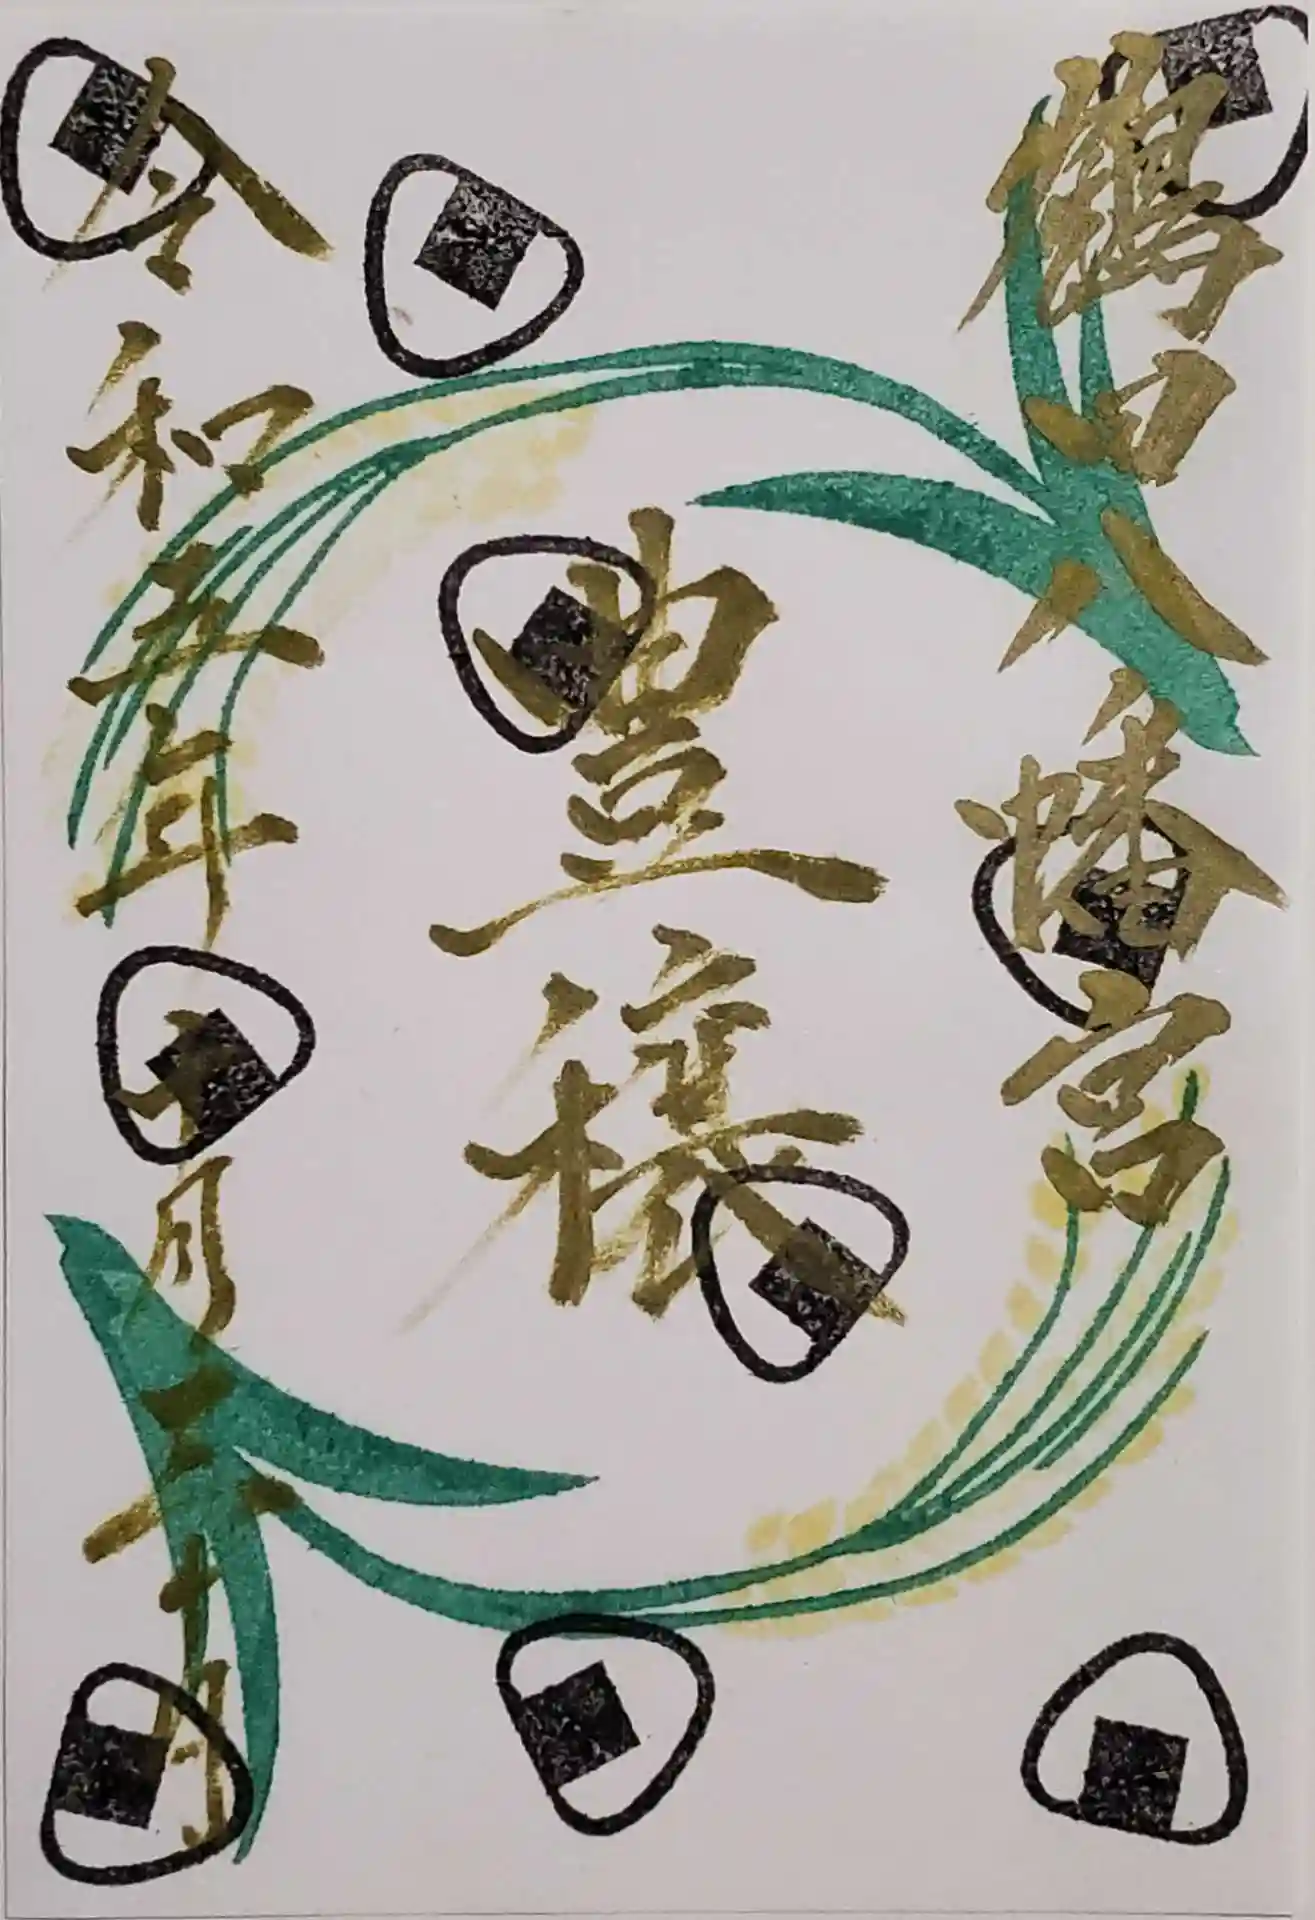 鶴田八幡宮
豊穣
令和五年十月三十日